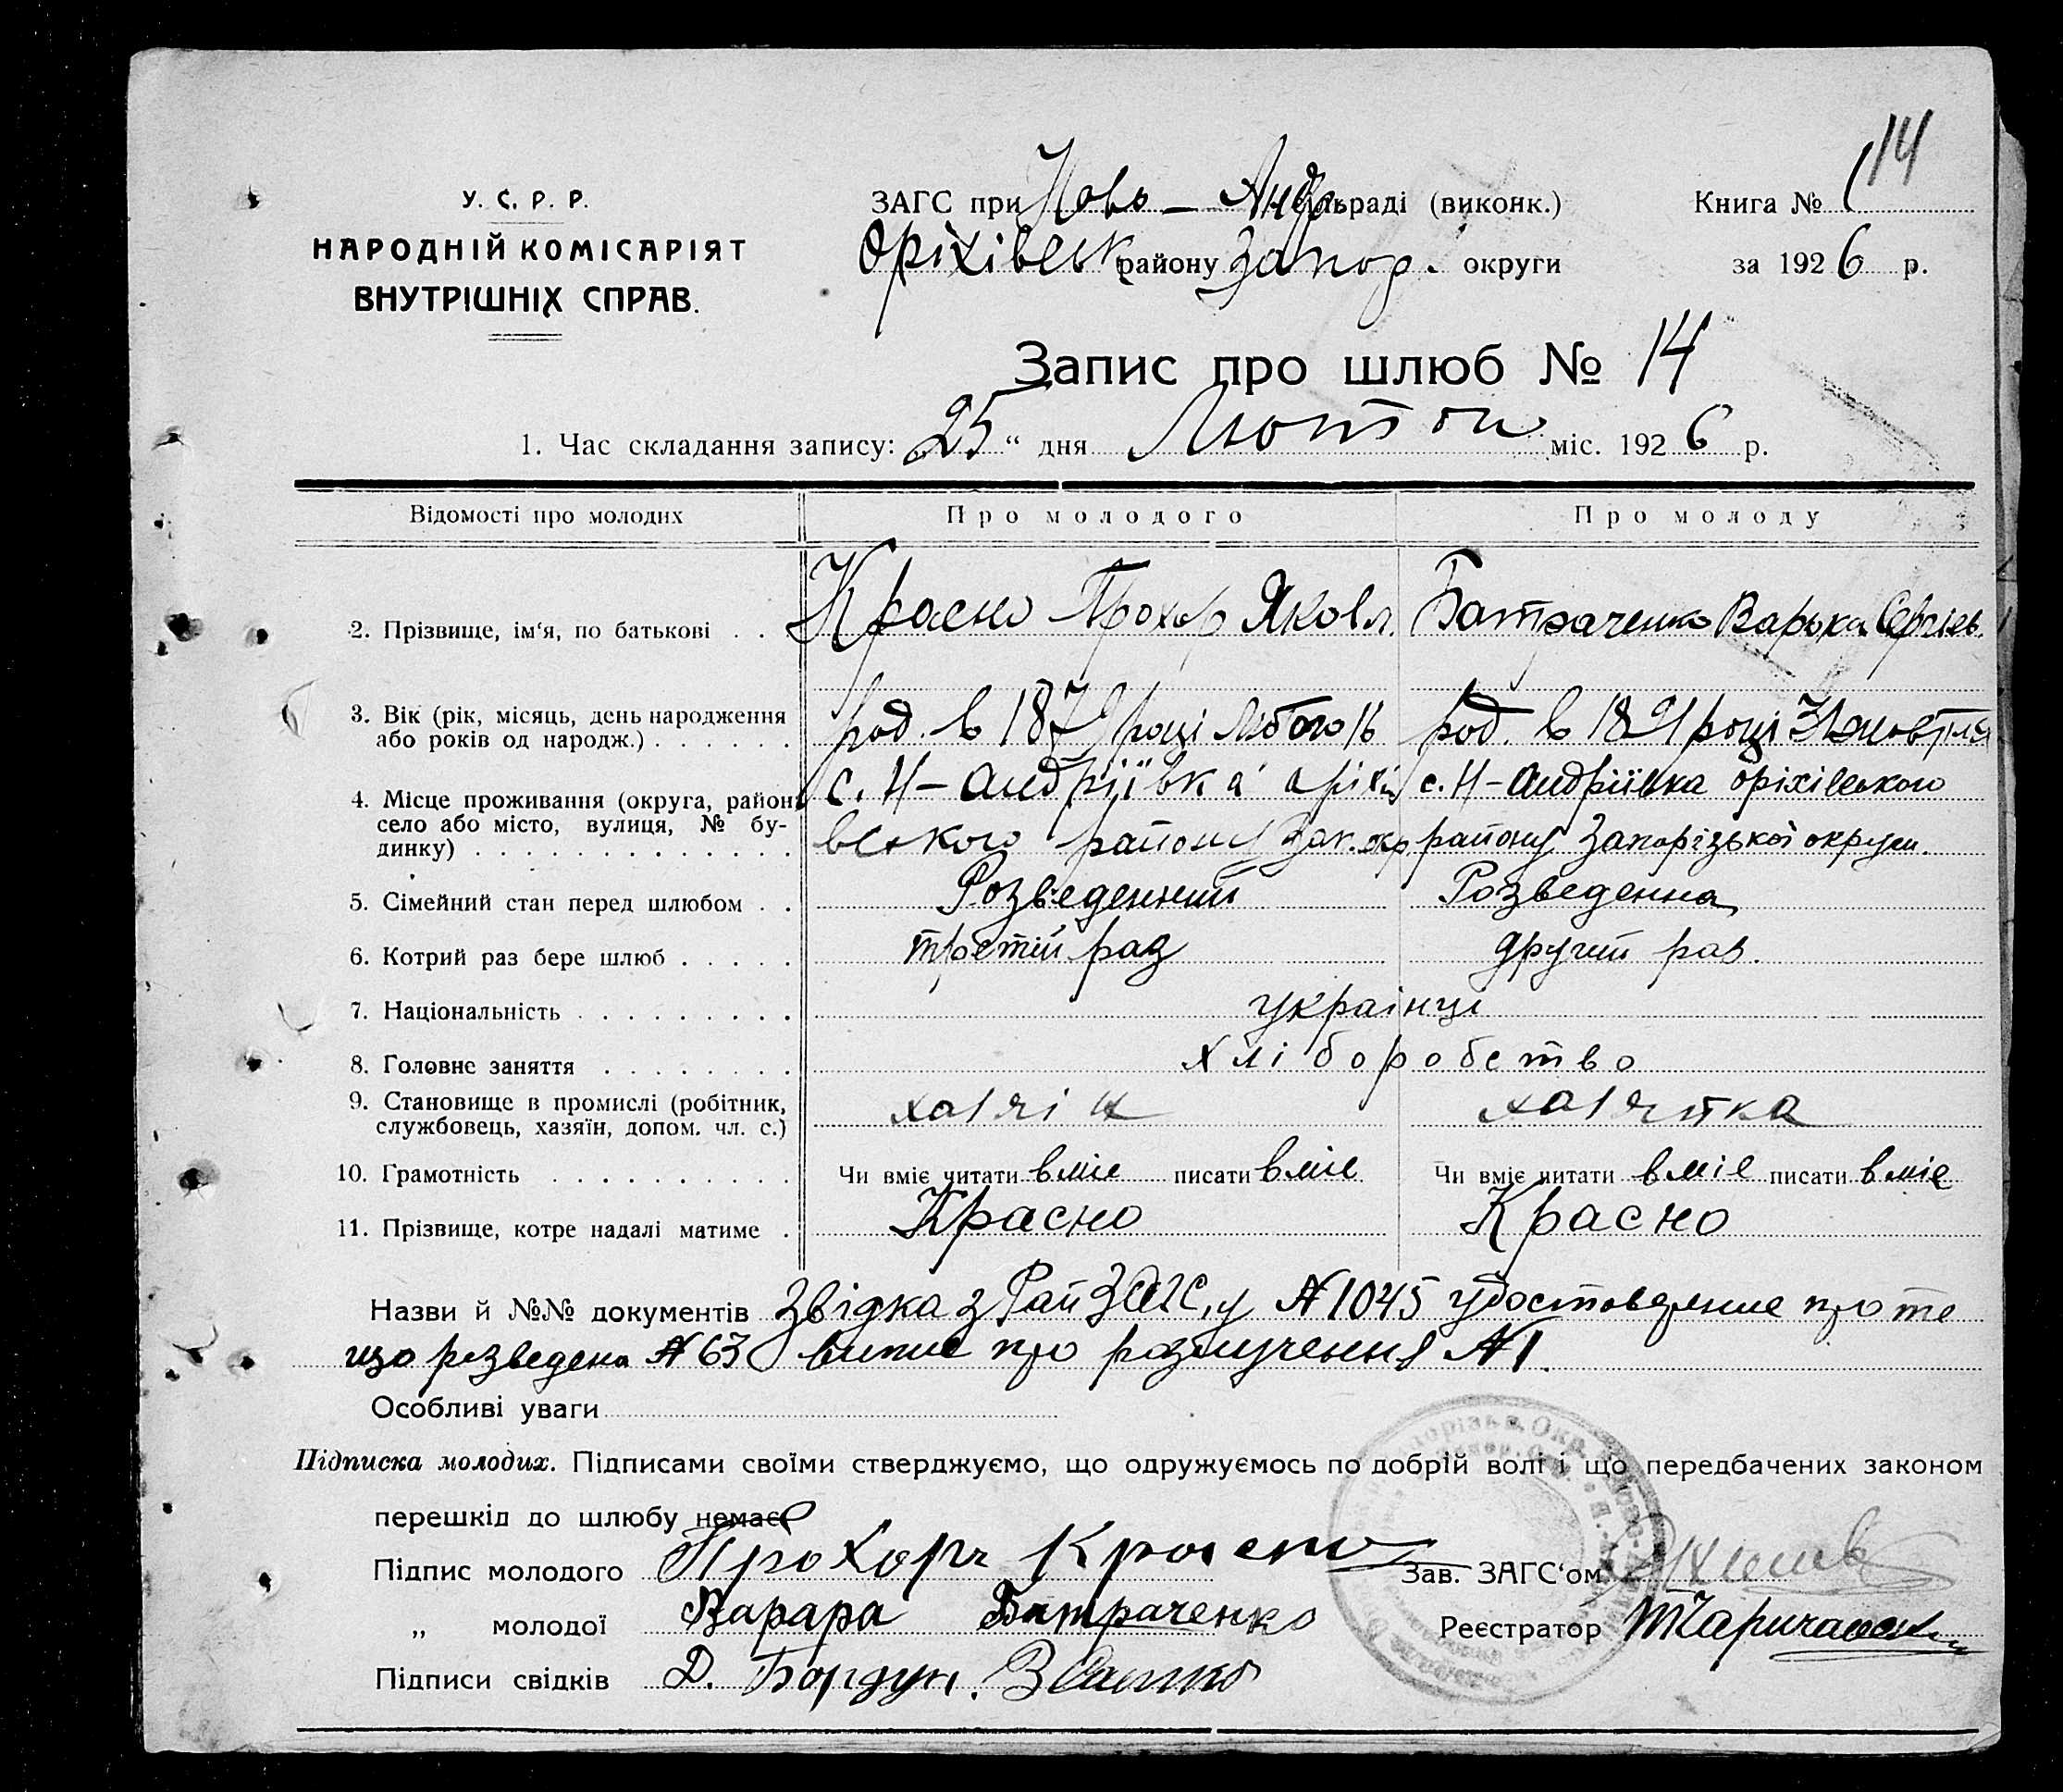 114
У. С. Р. Р.
НАРОДНІЙ КОМІСАРІЯТ
ВНУТРІШНІХ СПРАВ.
ЗАГС при Ново - Андр. сільраді (виконк.) Книга № 1
Оріхівськ району Запор. округи за 1926 р.
Запис про шлюб № 14
1. Час складання запису: „25“ дня Лютого міс. 1926 р.
Відомості про молодих Про молодого Про молоду
2. Прізвище, ім'я, по батькові . . . Красно Прохор Яковл. Батраченко Варька Сергіев.
3. Вік (рік, місяць, день народження род. в 1879 році Лютого 16 род. в 1891 році Жовтня
або років од народж.) . . . . . .
4. Місце проживання (округа, район с. Н-Андріївка оріхів с. Н-Андріївка оріхівського
село або місто, вулиця, № бу- ського району Зап. окр. району Запорізької округи.
динку) . . . . . . . . . . . . .
5. Сімейний стан перед шлюбом . . Розведенний Розведенна
6. Котрий раз бере шлюб . . . . . третій раз другий раз.
7. Національність . . . . . . . . . українці
8. Головне заняття . . . . . . . . хліборобство
9. Становище в промислі (робітник,
службовець, хазяїн, допом. чл. с.)
10. Грамотність . . . . . . . . . . Чи вміє читати вміє писати вміє Чи вміє читати вміє писати вміє
11. Прізвище, котре надалі матиме . Красно Красно
Назви й №№ документів Звідка з РайЗАГС,у №1045 удостовдение про те
що розведена №63 випис про розлучення №1.
Особливі уваги
Підписка молодих. Підписами своїми стверджуємо, що одружуємось по добрій волі і що передбачених законом
перешкід до шлюбу немає
Підпис молодого Прохоръ Красно Зав. ЗАГС'ом
„ молодої Варара Батраченко Реєстратор
Підписи свідків Д. Бордун.